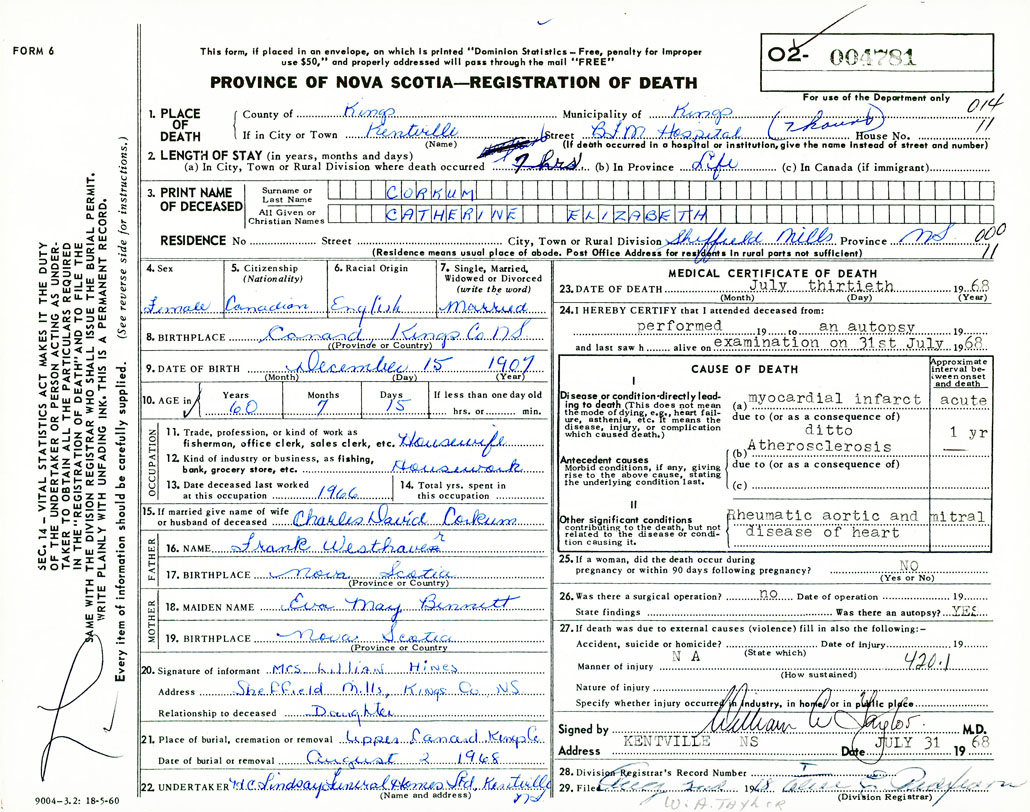 FORM 6
This form, if placed in an envelope, on which is printed "Dominion Statistics – Free, penalty for improper
use $50," and properly addressed will pass through the mail "FREE"
PROVINCE OF NOVA SCOTIA—REGISTRATION OF DEATH
O2- 004781
For use of the Department only
014
11
1. PLACE OF DEATH
County of Kings Municipality of Kings
If in City or Town Kentville Street B.F.M Hospital (7 hours) House No.
(Name) (If death occurred in a hospital or institution, give the name instead of street and number)
2. LENGTH OF STAY (in years, months and days)
(a) In City, Town or Rural Division where death occurred 7 hrs (b) In Province Life (c) In Canada (if immigrant)
3. PRINT NAME OF DECEASED
Surname or Last Name CORKUM
All Given or Christian Names CATHERINE ELIZABETH
RESIDENCE No Street City, Town or Rural Division Sheffield Mills Province NS
000
11
(Residence means usual place of abode. Post Office Address for residents in rural parts not sufficient)
4. Sex
Female
5. Citizenship
(Nationality)
Canadian
6. Racial Origin
English
7. Single, Married,
Widowed or Divorced
(write the word)
Married
8. BIRTHPLACE Canard, Kings Co NS
(Province or Country)
9. DATE OF BIRTH December 15 1907
(Month) (Day) (Year)
10. AGE in Years Months Days If less than one day old
60 7 15 hrs. or min.
OCCUPATION
11. Trade, profession, or kind of work as
fisherman, office clerk, sales clerk, etc. Housewife
12. Kind of industry or business, as fishing,
bank, grocery store, etc. Housework
13. Date deceased last worked
at this occupation 1966
14. Total yrs. spent in
this occupation
15. If married give name of wife
or husband of deceased Charles David Corkum
FATHER
16. NAME Frank Westhaver
17. BIRTHPLACE Nova Scotia
(Province or Country)
MOTHER
18. MAIDEN NAME Eva May Bennett
19. BIRTHPLACE Nova Scotia
(Province or Country)
20. Signature of informant Mrs Lillian Hines
Address Sheffield Mills, Kings Co NS
Relationship to deceased Daughter
21. Place of burial, cremation or removal Upper Canard Kings Co
Date of burial or removal August 2 1968
22. UNDERTAKER Lindsay Funeral Homes Ltd, Kentville
NS
(Name and address)
9004-3.2: 18-5-60
MEDICAL CERTIFICATE OF DEATH
23. DATE OF DEATH July thirtieth 1968
(Month) (Day) (Year)
24. I HEREBY CERTIFY that I attended deceased from:
performed 19 to an autopsy 19
and last saw h alive on examination on 31st July 1968
CAUSE OF DEATH
Approximate
interval be-
tween onset
and death
I
Disease or condition directly lead-
ing to death (This does not mean
the mode of dying, e.g., heart fail-
ure, asthenia, etc. It means the
disease, injury, or complication
which caused death.)
(a) myocardial infarct acute
due to (or as a consequence of)
ditto 1 yr
(b) Atherosclerosis
Antecedent causes
Morbid conditions, if any, giving
rise to the above cause, stating
the underlying condition last.
due to (or as a consequence of)
(c)
II
Other significant conditions
contributing to the death, but not
related to the disease or condi-
tion causing it.
Rheumatic aortic and mitral
disease of heart
25. If a woman, did the death occur during
pregnancy or within 90 days following pregnancy? NO
(Yes or No)
26. Was there a surgical operation? no Date of operation 19
State findings Was there an autopsy? YES
27. If death was due to external causes (violence) fill in also the following:–
Accident, suicide or homicide? Date of injury 19
N A (State which)
Manner of injury 420.1
(How sustained)
Nature of injury
Specify whether injury occurred in industry, in home, or in public place
Signed by William W Taylor. M.D.
Address KENTVILLE NS Date JULY 31 1968
28. Division Registrar's Record Number
29. Filed Aug 2nd 1968
(Division Registrar)
W. A. Taylor
SEC. 14– VITAL STATISTICS ACT MAKES IT THE DUTY
OF THE UNDERTAKER OR PERSON ACTING AS UNDER-
TAKER TO OBTAIN ALL THE PARTICULARS REQUIRED
IN THE "REGISTRATION OF DEATH" AND TO FILE THE
SAME WITH THE DIVISION REGISTRAR WHO SHALL ISSUE THE BURIAL PERMIT.
WRITE PLAINLY WITH UNFADING INK. THIS IS A PERMANENT RECORD.
Every item of information should be carefully supplied. (See reverse side for instructions.)